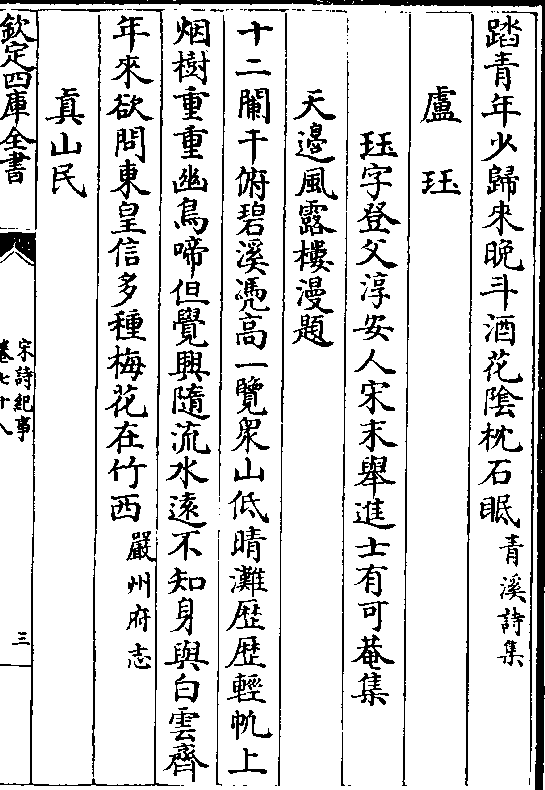 踏青年少歸来晚斗酒花陰枕石眠青溪詩集
盧珏
珏字登父淳安人宋末舉進士有可菴集
天邊風露樓漫題
十二闌干俯碧溪凴高一覽衆山低晴灘歴歴輕帆上
烟樹重重幽鳥啼但覺興隨流水逺不知身與白雲齊
年來欲問東皇信多種梅花在竹西嚴州府志
真山民
欽定四庫全書
宋詩紀事
卷七十八
三